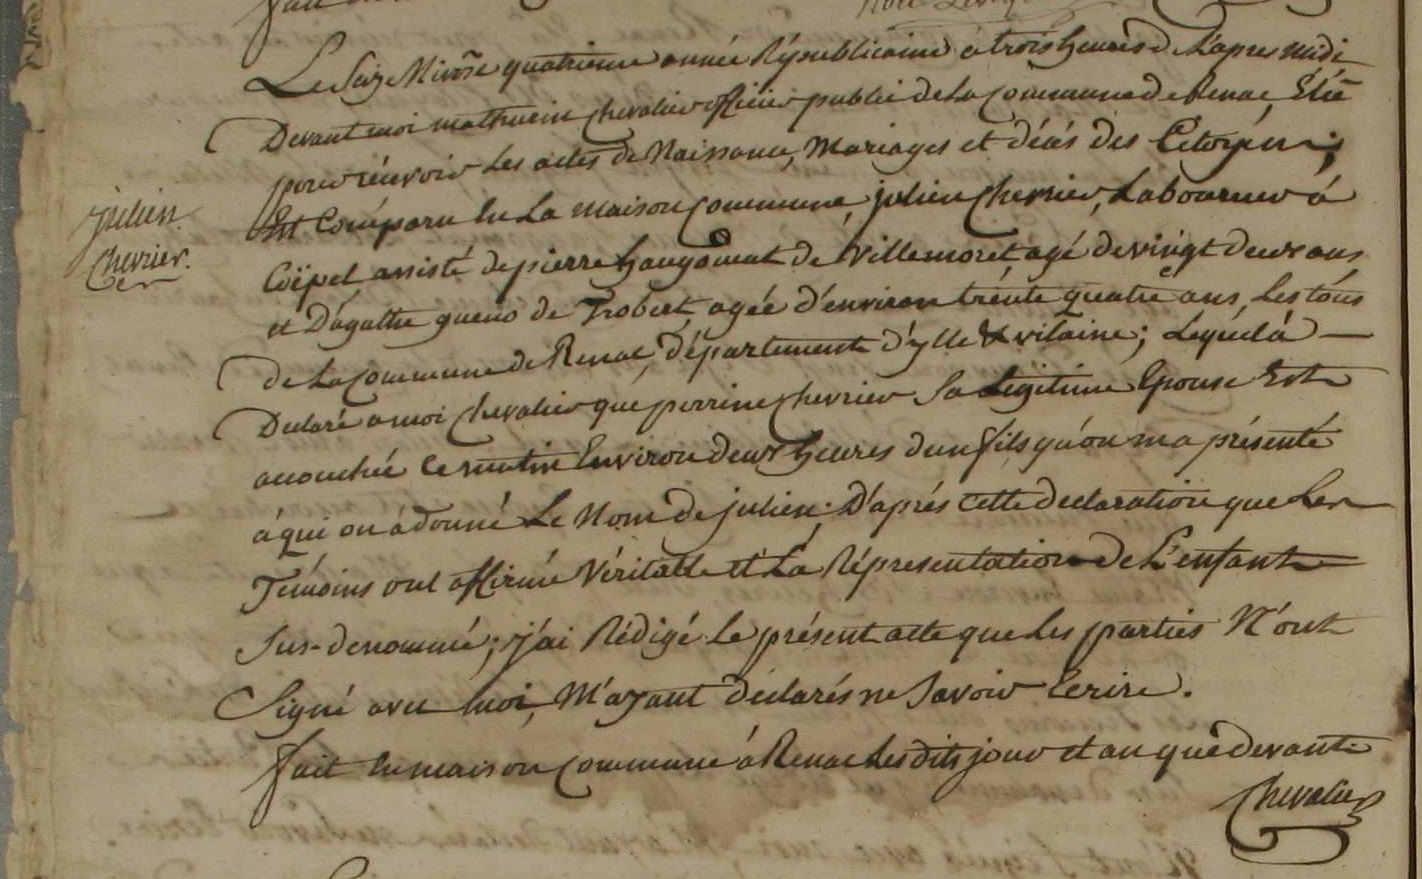 Le Seize Nivôse quatrieme année Républicaine à trois heures de L'apres midi
Devant moi mathurin Chevalier officier public de La Commune de Renac, Elû
pour récevoir Les actes de Naissance, Mariages et décès des Citoyens;
Est Comparu En La maison Commune, julien Chevrier, Laboureur à
Coïpel assisté de pierre haugoumat de Villemoret agé de vingt deux ans
et D'agathe gueno de Trobert agée d'environ trente quatre ans, Les tous
julien
Chevrier.
de La Commune de Renac, département d'ylle & vilaine; Lequel à
Declaré a moi Chevalier que perrine Chevrier Sa Légitime Epouse Est
accouchée ce matin Environ deux heures d'un fils qu'on m'a présenté
à qui on à donné Le Nom de julien. D'aprés cette declaration que Les
Témoins ont affirmé Véritable et La Répresentation de L'enfant
Sus-denommé; j'ai Rédigé Le présent acte que Les parties N'ont
Signé avec moi, M'ayant déclarés ne Savoir Ecrire.
fait En maison Commune à Renac Les dits jour et an que devant
Chevalier